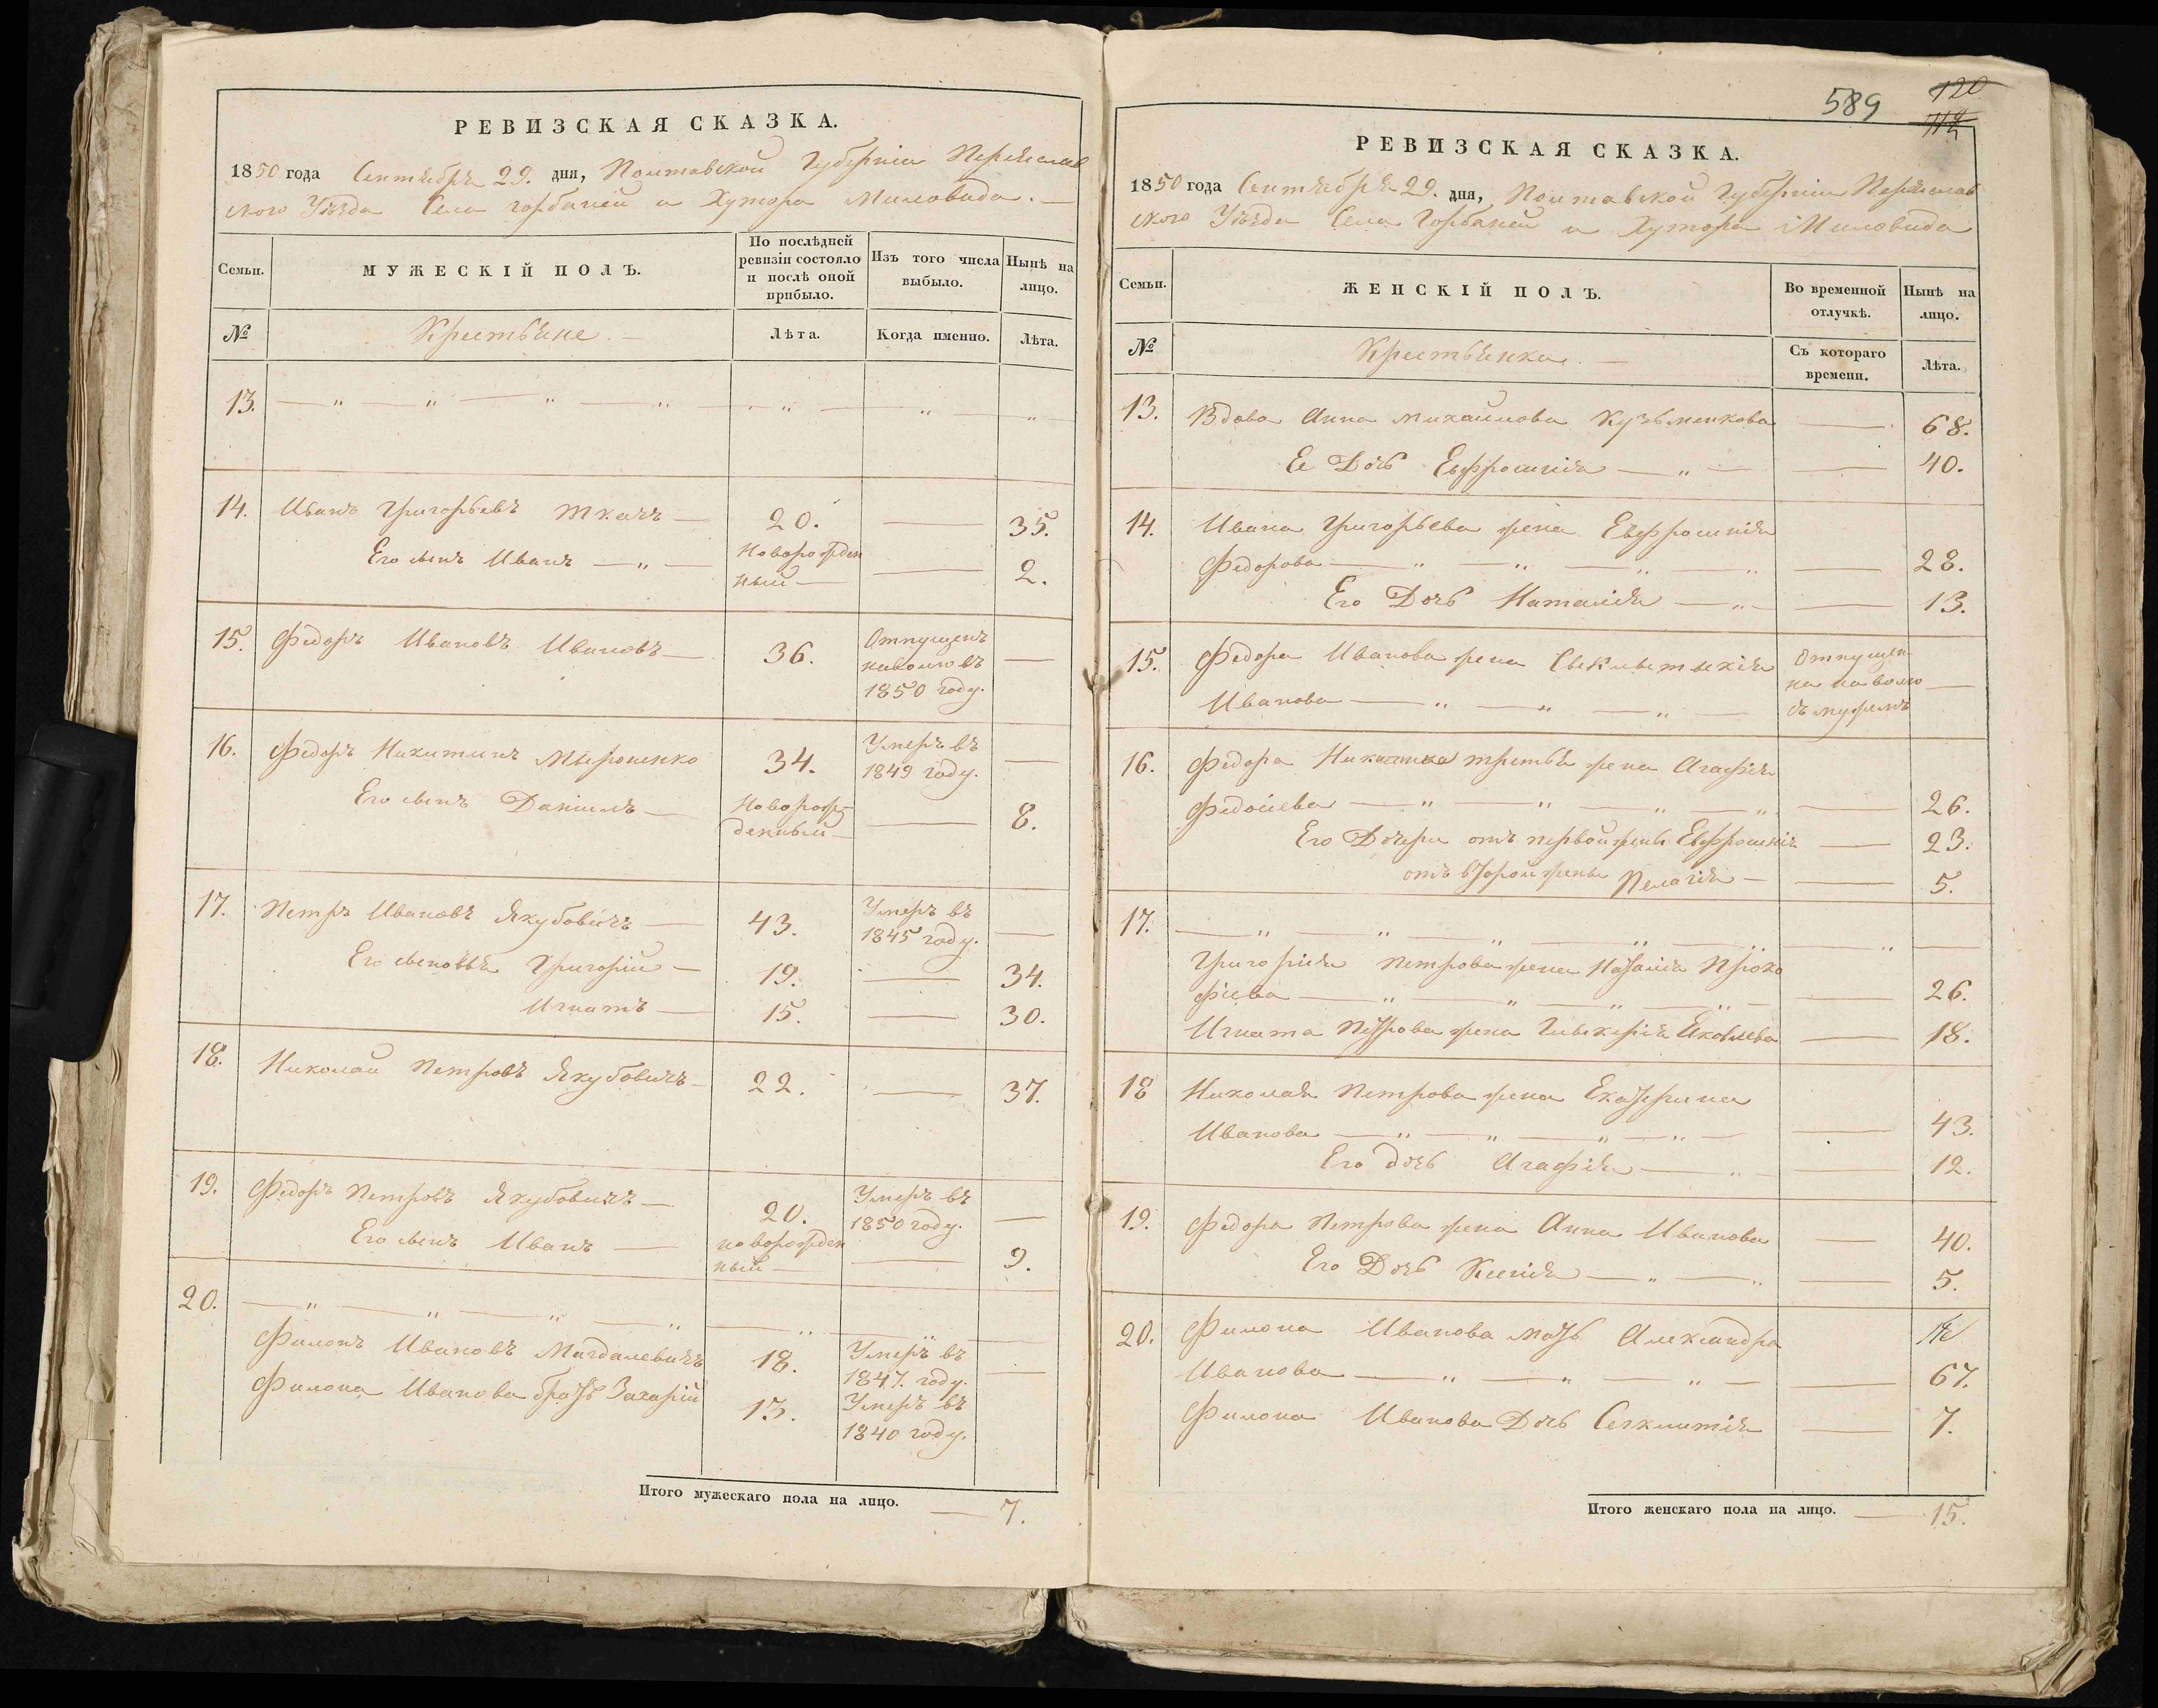 РЕВИЗСКАЯ СКАЗКА.
1850 года Сентября 29. дня, Полтавской Губерніи Переяслав
скаго Уѣзда Села Горбаней и Хутора Миловида. —
Семьи.
МУЖЕСКІЙ ПОЛЪ.
По послѣдней
ревизіи состояло
и послѣ оной
прибыло.
Изъ того числа
выбыло.
Нынѣ на
лицо.
№
Крестьяне. —
Лѣта.
Когда именно.
Лѣта.
13. — „ — „ — „ — „ — „ — „ — „
14. Иванъ Григорьевъ Ткачъ — 20. — 35.
Его сынъ Иванъ — „ — Новорожден
ный — — 2.
15. Федоръ Ивановъ Ивановъ — 36. Отпущенъ
на волю въ —
1850 году.
16. Федоръ Никитинъ Мироненко 34. Умеръ въ
1849 году. —
Его сынъ Даніилъ — Новорож-
денный — — 8.
17. Петръ Ивановъ Якубовичъ — 43. Умеръ въ
1845 году. —
Его сыновья Григорій — 19. — 34.
Игнатъ — 15. — 30.
18. Николай Петровъ Якубовичъ — 22. — 37.
19. Федоръ Петровъ Якубовичъ — 20. Умеръ въ
1850 году. —
Его сынъ Иванъ — новорожден
ный — — 9.
20. — „ — „ — „ — „ — „ — „ —
Филонъ Ивановъ Магдалевичъ 18. Умеръ въ
1847. году. —
Филона Иванова братъ Захарій 13. Умеръ въ
1840 году.
Итого мужескаго пола на лицо. — 7.
589
120
РЕВИЗСКАЯ СКАЗКА.
1850 года Сентября 29. дня, Полтавской Губерніи Переяслав
скаго Уѣзда Села Горбаней и Хутора Миловида
Семьи.
ЖЕНСКІЙ ПОЛЪ.
Во временной
отлучкѣ.
Нынѣ на
лицо.
№
Крестьянки. —
Съ котораго
времени.
Лѣта.
13. Вдова Анна Михайлова Кузьменкова — 68.
Ее Дочь Евфросинія — „ — — 40.
14. Ивана Григорьева жена Евфросинія
Федорова — „ — „ — „ — „ — 28.
Его Дочь Наталія — „ — — 13.
15. Федора Иванова жена Отпущен-
на на волю —
Иванова — „ — „ — „ — съ мужемъ
16. Федора Никитина третья жена Агафія
— „ — „ — „ — „ — 26.
Его Дочери отъ первой жены Евфросинія — 23.
отъ второй жены Пелагія — — 5.
17. — „ — „ — „ — „ — „ — „ —
Григорія Петрова жена Наталія Проко
фіева — „ — „ — „ — „ — — 26.
Игната Петрова жена Гликерія Яковлева — 18.
18 Николая Петрова жена Екатерина
Иванова — „ — „ — „ — „ — — 43.
Его дочь Агафія — „ — 12.
19. Федора Петрова жена Анна Иванова — 40.
Его Дочь Ксенія — „ — „ — 5.
20. Филона Иванова мать Александра
Иванова — „ — „ — „ — — 67.
Филона Иванова Дочь — 7.
Итого женскаго пола на лицо. — 15.